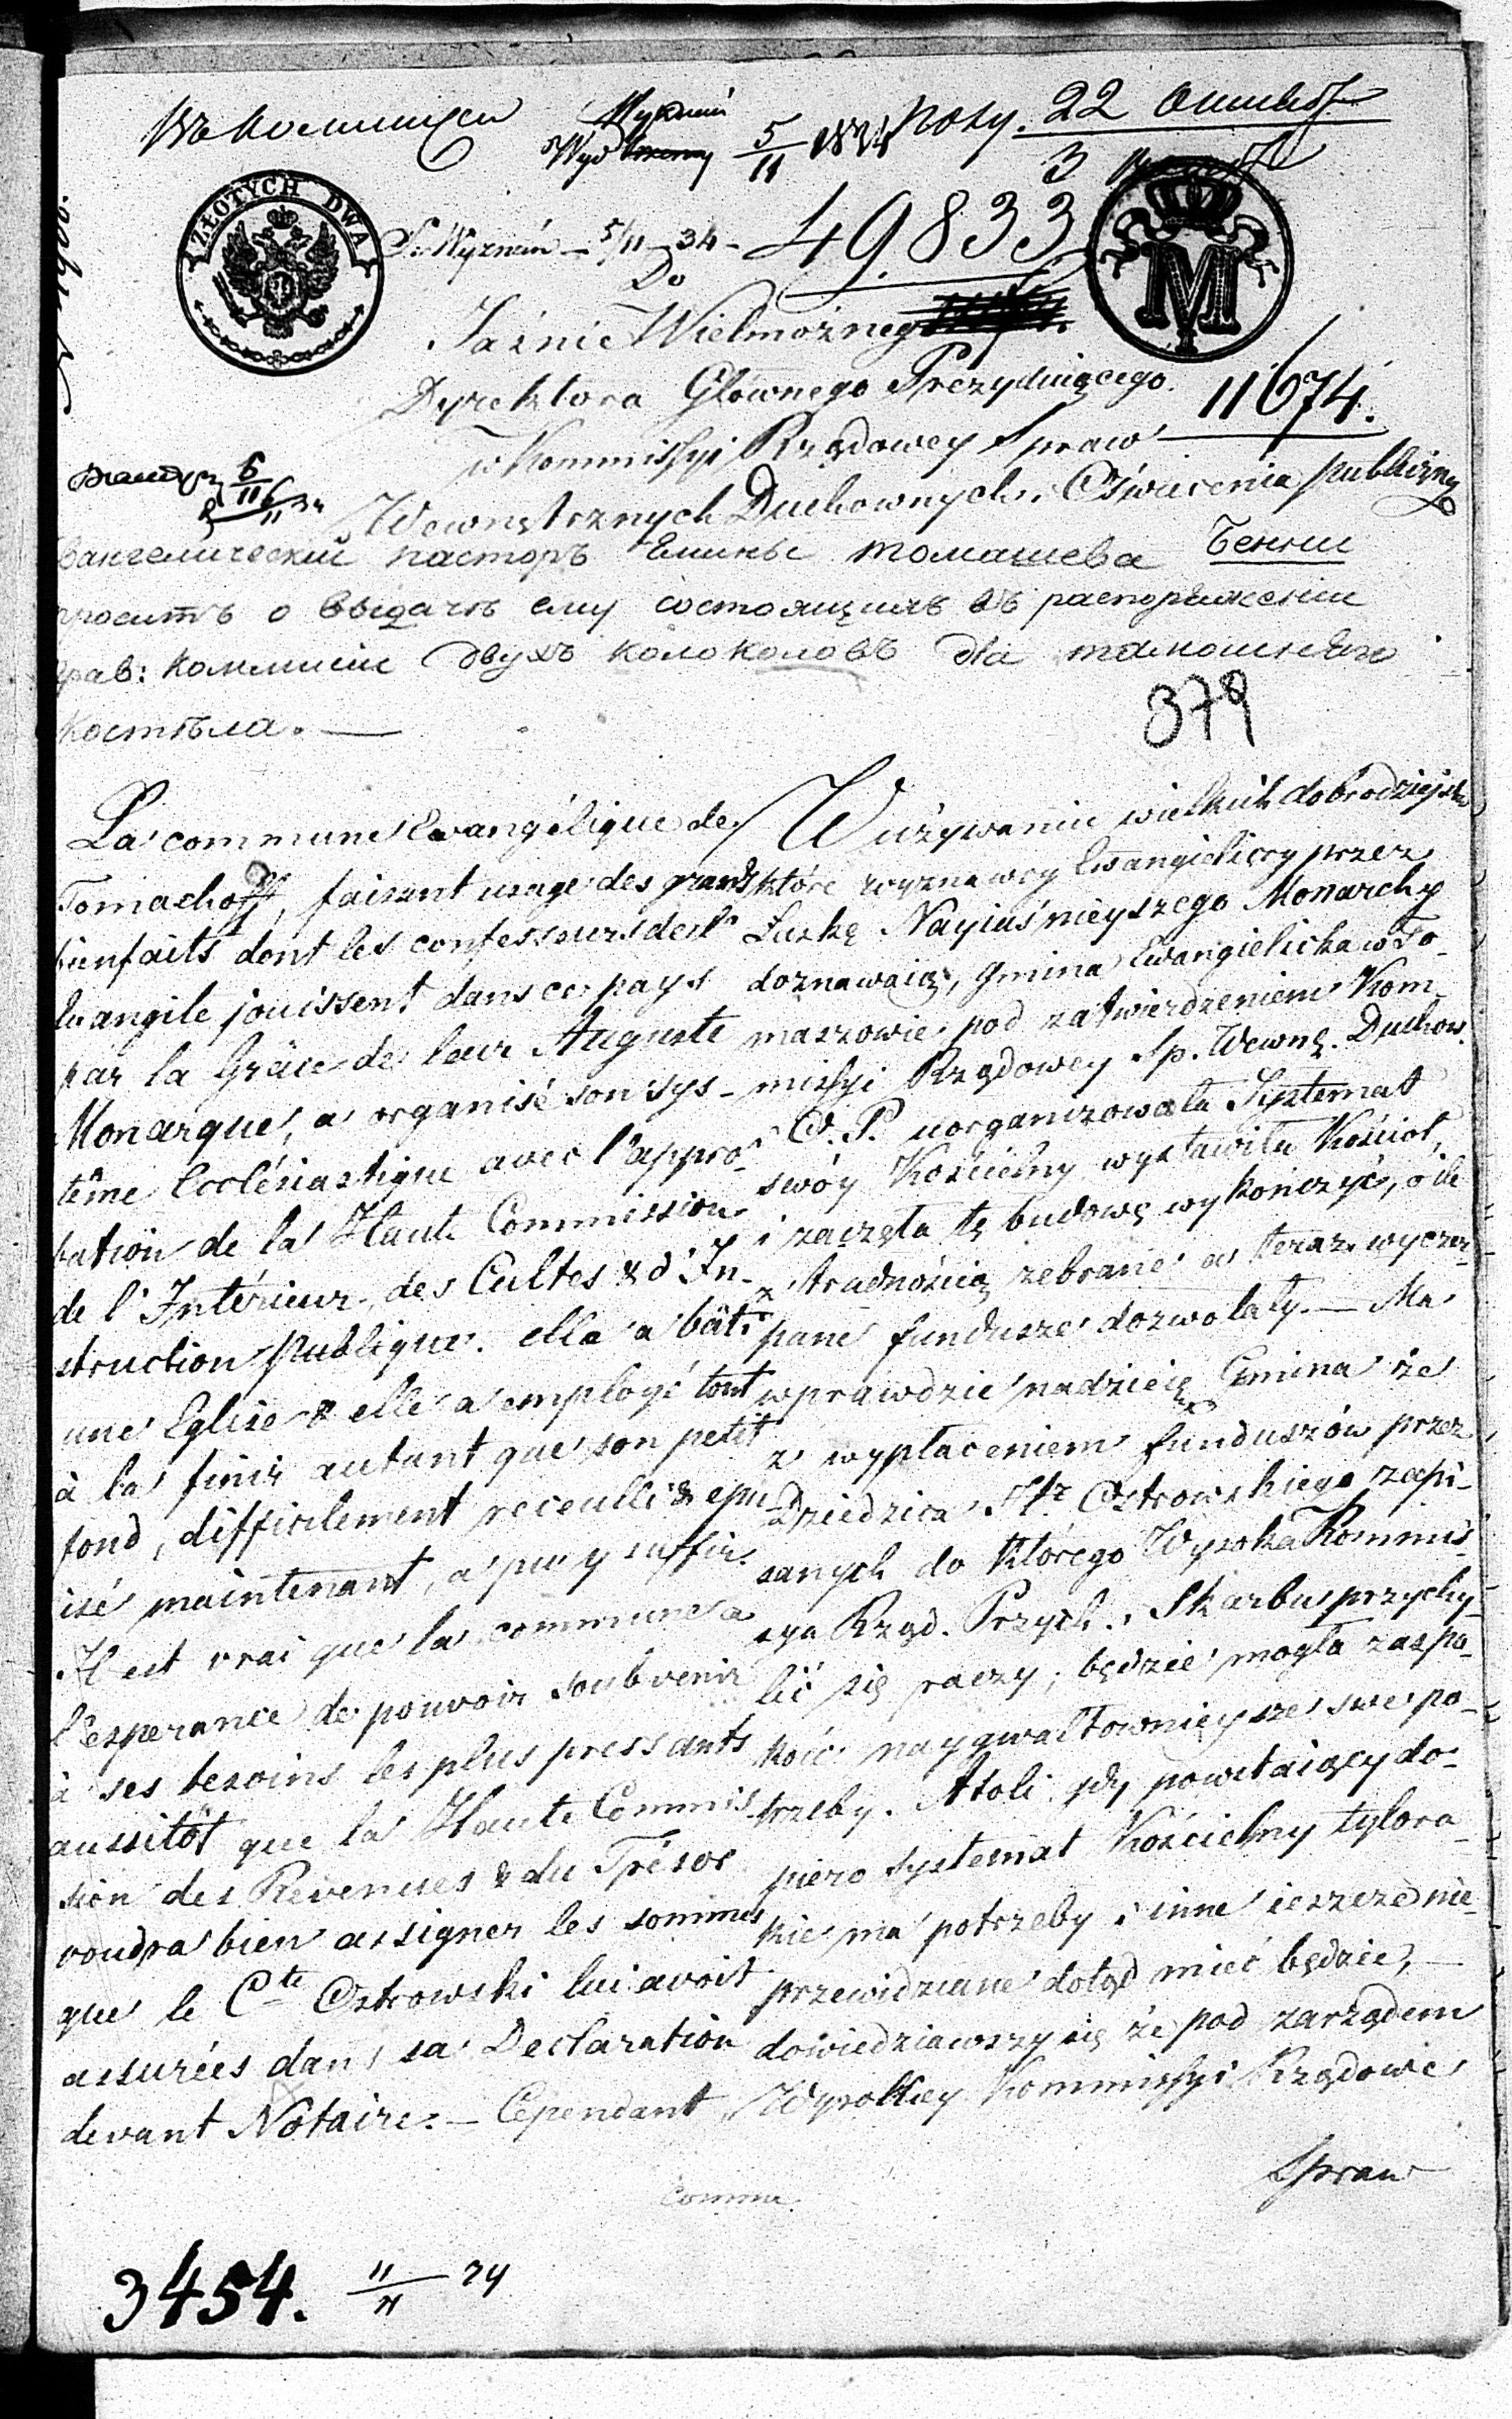 Wydz
5/11
22
3
ZŁOTYCH DWA
S. Wyznań – 5/11 – 34 –
49.833
M
Do
Jaśnie Wielmożnego
Dyrektora Głównego Prezyduiącego
11674.
w Kommissyi Rządowey Spraw
Wewnętrznych Duchownych i Oświecenia publiczne
6/11
Евангелический пасторъ Гмины Томашева Бенни
проситъ о выдачѣ ему состоящихъ въ распоряженiи
Прав: Коммисiи двухъ колоколовъ для тамошняго
костѣла. —
379
La commune Evangélique de
Tomachoff, faisant usage des grands
bienfaits dont les confesseurs de l'
Evangile jouissent dans ce pays
par la Grâce de leur Auguste
Monarque, a organisé son sys-
tême Ecclésiastique avec l'appro-
bation de la Haute Commission
de l'Intérieur, des Cultes & d'In-
struction publique. elle a bâti
une Eglise & elle a employé tout
à la finir autant que son petit
fond, difficilement receuilli & epu-
isé maintenant, a pu y suffir.
Il est vrai que la commune a
l'esperance de pouvoir soubvenir
à ses besoins les plus pressants
aussitôt que la Haute Commis-
sion des Revenues & du Trésor
voudra bien assigner les sommes
que le Cte Ostrowski lui avoit
assurées dans sa Declaration
devant Notaire. – Cependant
W używaniu wielkich dobrodziejstw
które wyznawcy Ewangieliccy przez
Łaskę Nayiaśnieyszego Monarchy
doznawaią, Gmina Ewangielicka w To-
maszowie pod zatwierdzeniem Kom-
missyi Rządowey Sp. Wewnę. Duchow.
O. P. uorganizowała Systemat
swóy Kościelny wystawiła Kościoł,
i zaczęła tę budowę wykończyć, o ile
z trudnością zebrane a teraz wyczer-
pane fundusze dozwolały. — Ma
wprawdzie nadzieię Gmina że
z wypłaceniem funduszów przez
Dziedzica Hr. Ostrowskiego zapi-
sanych do którego Wysoka Kommis-
sya Rząd. Przych. i Skarbu przychy-
lić się raczy, będzie mogła zaspo-
koić naygwałtownieysze swe po-
trzeby. Atoli gdy powstaiący do-
piero systemat Kościelny tylora-
kie ma potrzeby i inne ieszcze nie-
przewidziane dotąd mieć będzie, —
dowiedziawszy się że pod zarządem
Wysokiey Kommissyi Rządowe
Spraw
comma
3454. 11/11 34